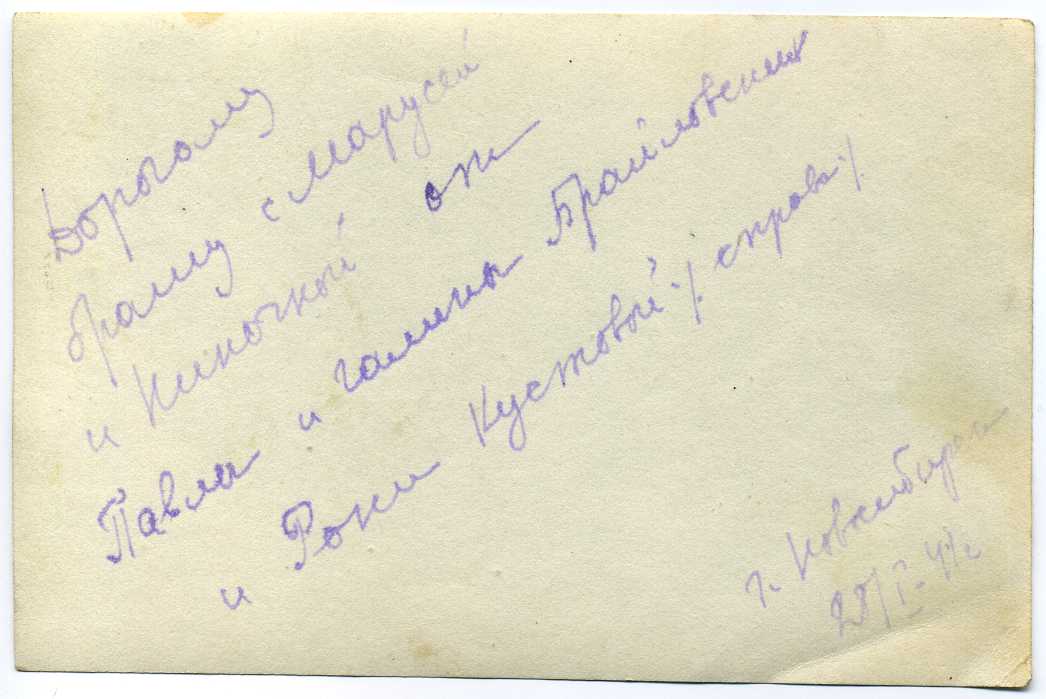 Дорогому
брату с Марусей
и Ниночкой от
Павла и Галины Браиловских
и Рони Кустовой ·/. справа ·/.
г. Новосибирск
28/I-44г